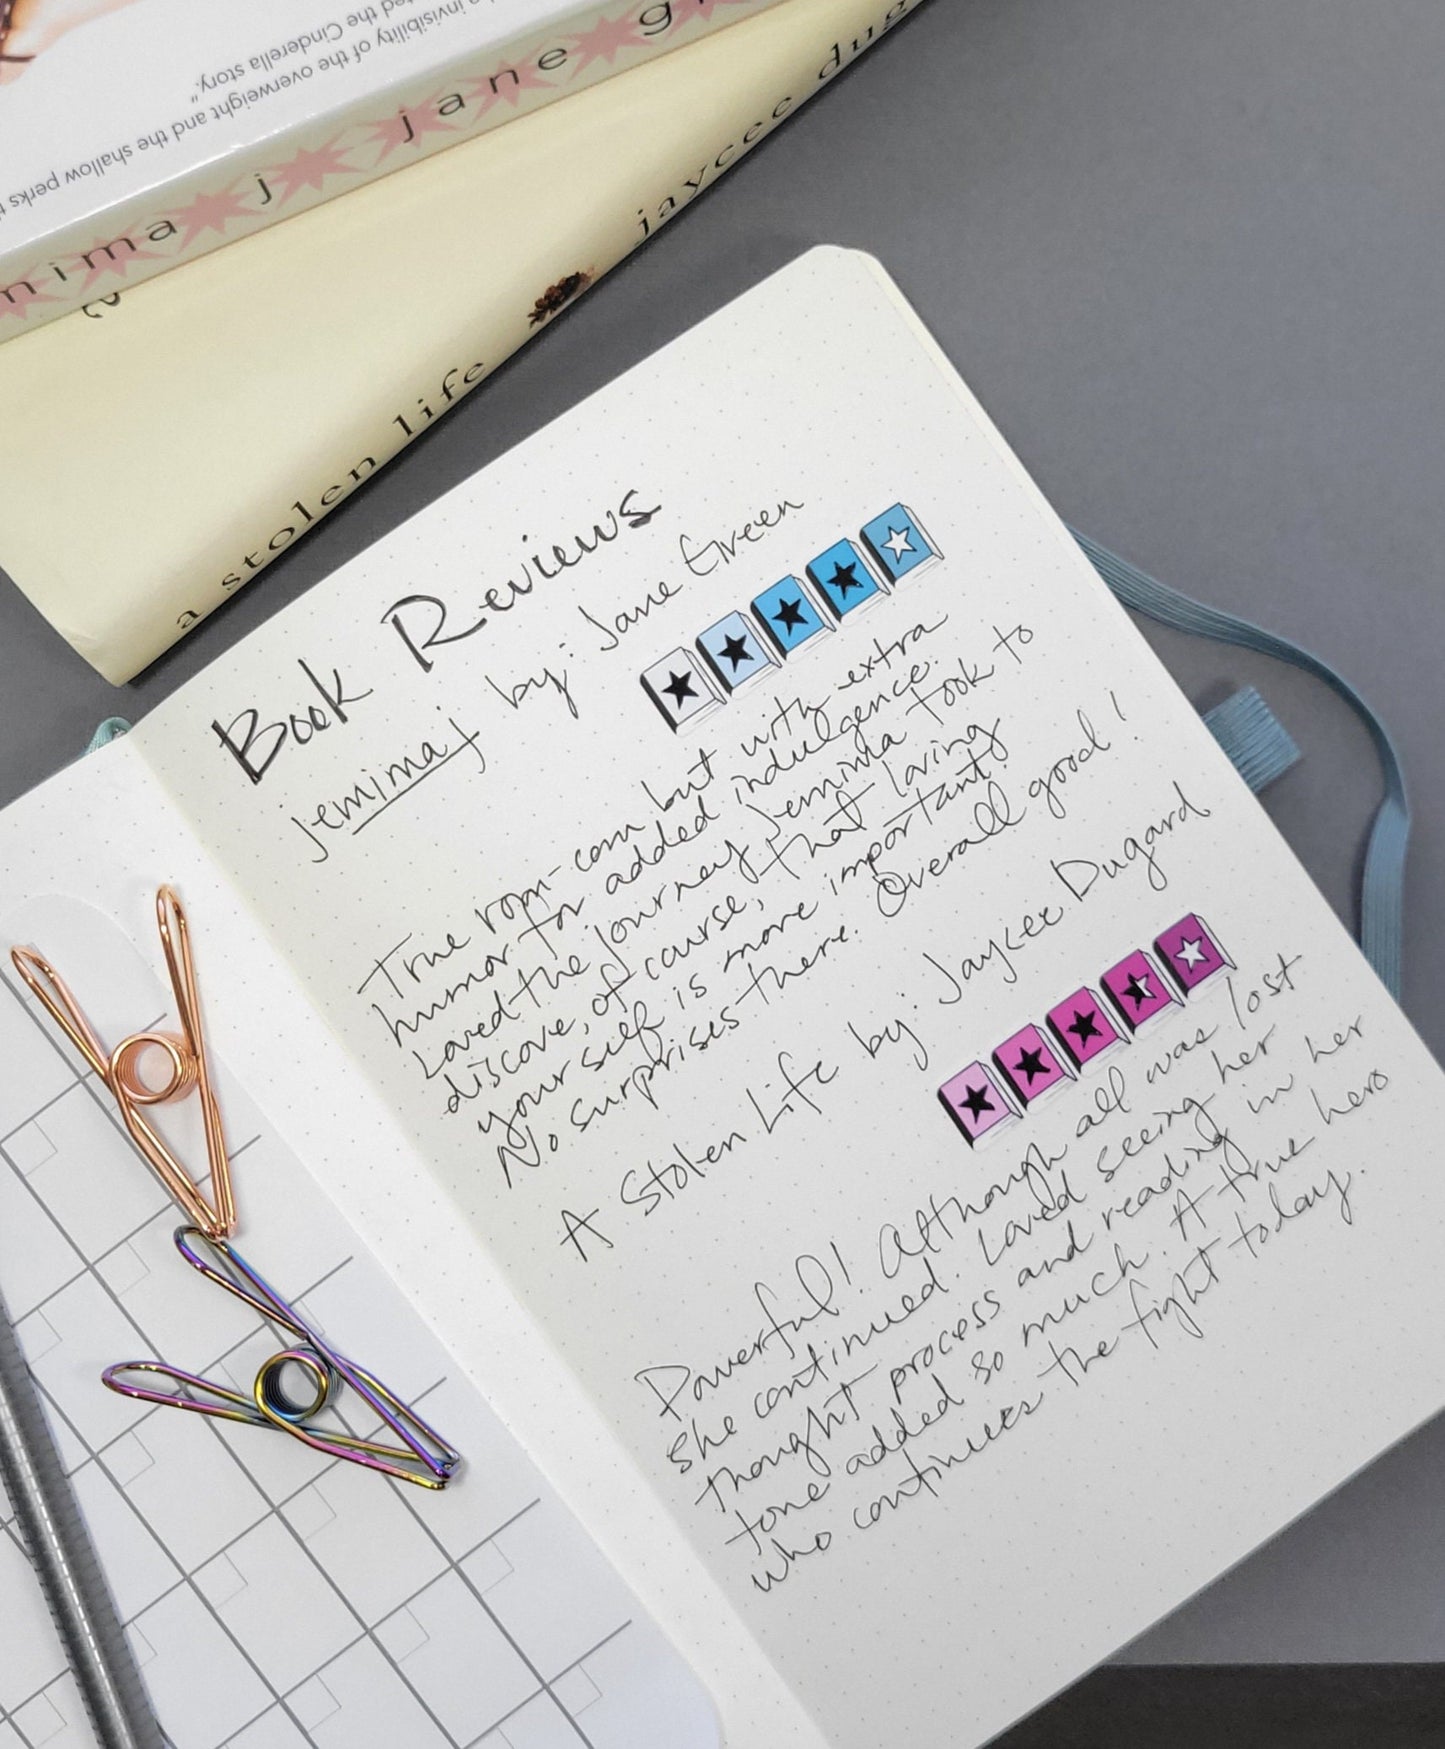 invisibility of the overweight and the shallow perks
the Cinderella story."
mima j jane g
2
a stolen life jaycee dug
Book Reviews
jemima j by: Jane Green
True rom-com but with extra
humor for added indulgence.
Loved the journey Jemima took to
discove, of course, that loving
yourself is more important.
No surprises there. Overall good!
A Stolen Life by: Jaycee Dugard
Powerful! Although all was lost
she continued. Loved seeing her
thought process and reading in her
tone added so much. A true hero
who continues the fight today.